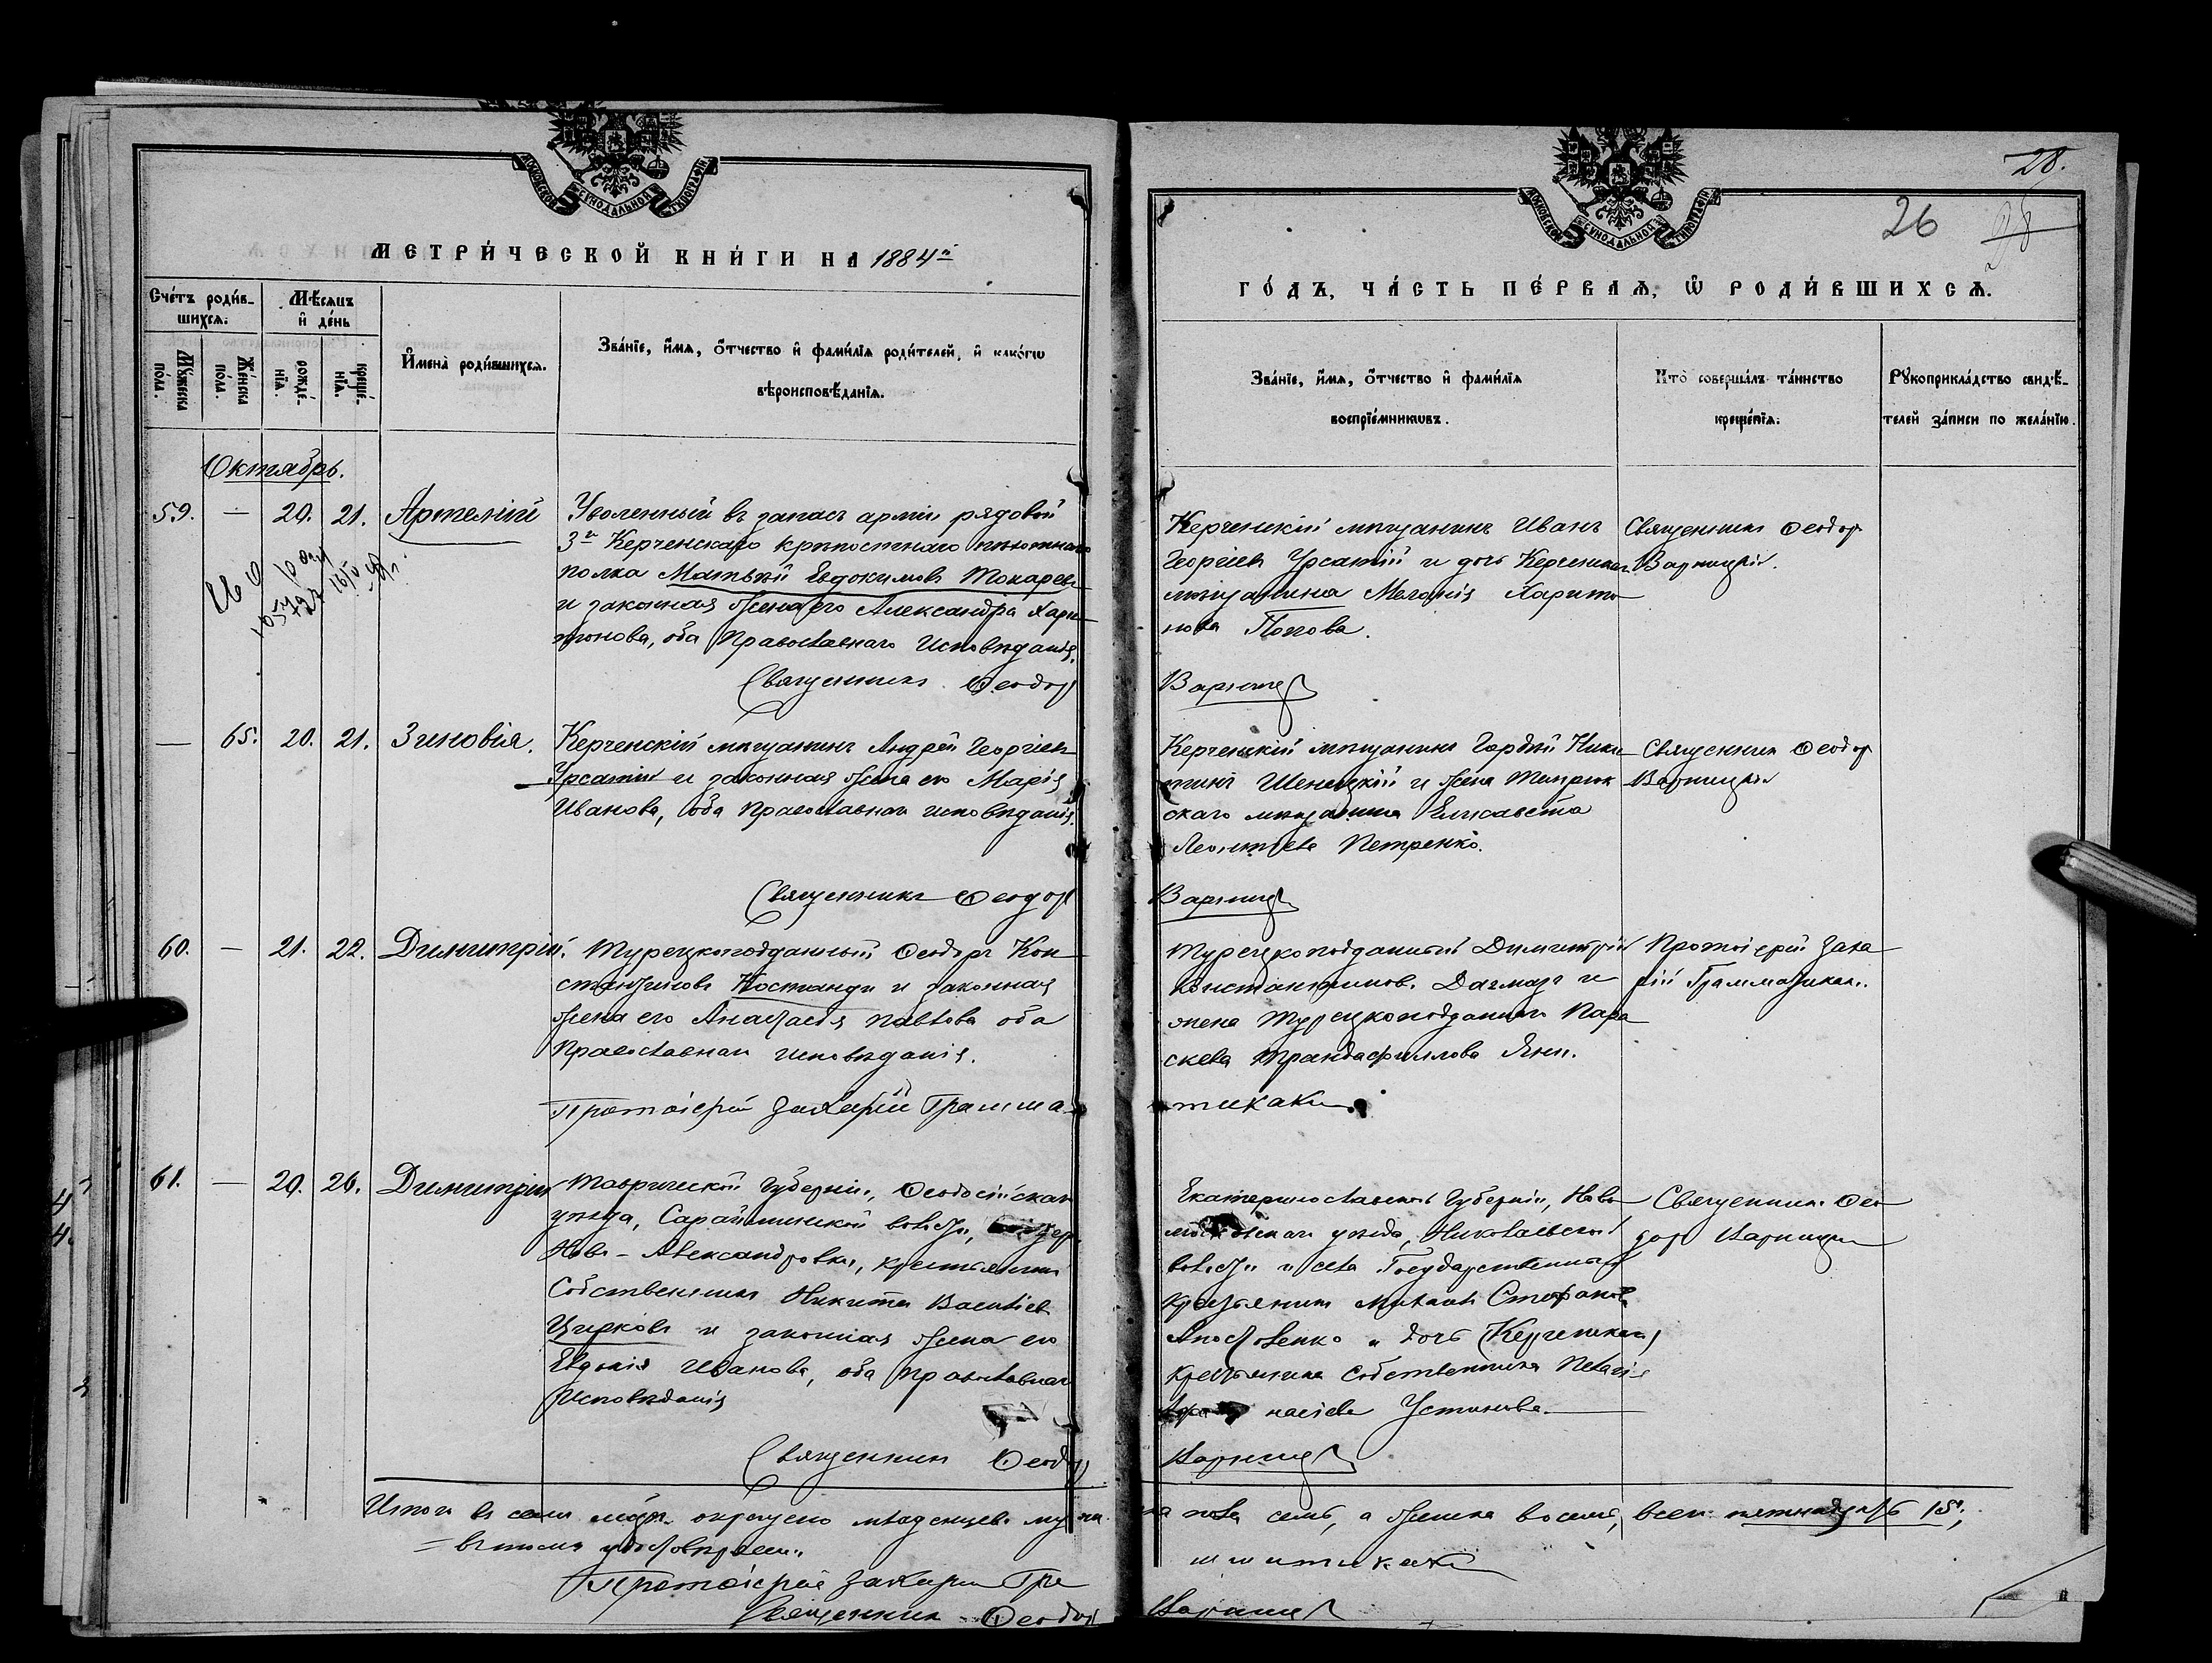 28.
26
МОСКОВСКОЙ СѴНОДАЛЬНОЙ ТИПОГРАФІИ
МОСКОВСКОЙ СѴНОДАЛЬНОЙ ТИПОГРАФІИ
МЕТРИ́ЧЕСКОЙ КНИ́ГИ НА 1884й
ГО́ДЪ, ЧА́СТЬ ПЕ́РВАѦ, Ѽ РОДИ́ВШИХСѦ.
Сче́тъ роди́в-
шихсѧ.
Мѣ́сѧцъ
и̂ де́нь
Мꙋ́жеска
по́ла.
Же́нска
по́ла.
рожде́-
нїѧ.
креще́-
нїѧ.
И̂мена̀ роди́вшихсѧ.
Зва́нїе, и́мѧ, о́тчество и̂ фами́лїѧ роди́телей, и̂ како́гѡ
вѣроисповѣ́данїѧ.
Зва́нїе, и́мѧ, о́тчество и̂ фами́лїѧ
воспрїе́мникѡвъ.
Кто̀ соверша́лъ та́инство
креще́нїѧ.
Рꙋкоприкла́дство свидѣ́-
телей за́писи по жела́нїю.
Октябрь.
59. — 20. 21. Артемій
Уволенный въ запасъ арміи рядовой
3й Керченскаго крѣпостнаго пѣхотнаго
полка Матвѣй Евдокимовъ Токаревъ
и законная жена его Александра Хари-
тонова, оба Православнаго Исповѣданія.
Священникъ Ѳеодоръ
Керченскій мѣщанинъ Иванъ
Георгіевъ Урсатій и дочь Керченскаго
мѣщанина Меланія Харито-
нова Попова.
Варниц
Священникъ Ѳеодоръ
Варницкій.
— 65. 20. 21. Зиновія.
Керченскій мѣщанинъ Андрей Георгіевъ
Урсатій и законная жена его Марія
Иванова, оба Православнаго исповѣданія.
Священникъ Ѳеодоръ
Керченскій мѣщанинъ Гордѣй Ники-
тинъ Шеницкій и жена Темрюк
скаго мѣщанина Елисавета
Леонтьева Петренко.
Варниц
Священникъ Ѳеодоръ
Варницкій
60. — 21. 22. Димитрій.
Турецкоподданный Ѳеодоръ Кон-
стантиновъ Костанди и законная
жена его Анастасія Павлова оба
Православнаго исповѣданія.
Протоіерей Захарій Грамма-
Турецкоподданный Димитрій
Константинов. и
жена Турецкоподданнаго Пара
скева Трандафиллова Яни.
тикаки
Протоіерей Заха
рій Грамматикаки.
61. — 20. 26. Димитрій
Таврической Губерніи, Ѳеодосійскаго
уѣзда, Сарайминской волости,
Ново-Александровки, крестьянинъ
Собственникъ Никита Васильевъ
Цирковъ и законная жена его
Евдокія Иванова, оба Православнаго
Исповѣданія
Священникъ Ѳеодоръ
Екатеринославской Губерніи, Ново-
московскаго уѣзда, Николаевской
волости и села Государственный
крестьянинъ Михаилъ Стефановъ
Апостоленко и дочь Керченскаго
крестьянина собственника Пелагія
насіева Устинова.
Варниц
Священникъ Ѳео-
доръ Варницкій
Итого въ семъ мѣсяцѣ окрещено младенцевъ муж
ка пола семь, а женска восемь, всего пятнадцать 15,
въ томъ удостовѣряемъ
Протоіерей Захарій Гра
мматикаки
Священникъ Ѳеодоръ
Варниц